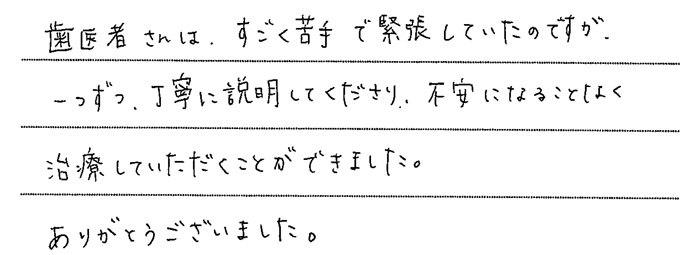 歯医者さんは、すごく苦手で緊張していたのですが、
一つずつ、丁寧に説明してくださり、不安になることなく
治療していただくことができました。
ありがとうございました。